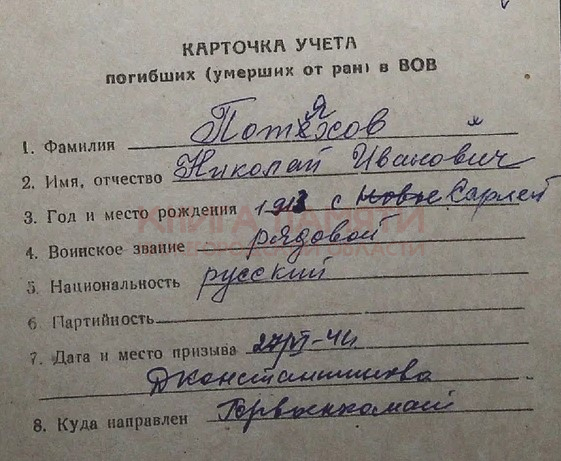 КАРТОЧКА УЧЕТА
погибших (умерших от ран) в ВОВ
1. Фамилия Потяхов
2. Имя, отчество Николай Иванович
3. Год и место рождения 1913 с Новое Сарлей
КНИГА ПАМЯТИ
НИЖЕГОРОДСКОЙ ОБЛАСТИ
4. Воинское звание рядовой
5. Национальность русский
6. Партийность
7. Дата и место призыва 27/VI-41
Дконстантиново
8. Куда направлен Горвоенкомат